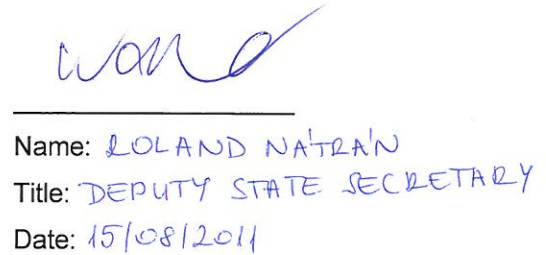 Name: ROLAND NÁTRÁN
Title: DEPUTY STATE SECRETARY
Date: 15/08/2011